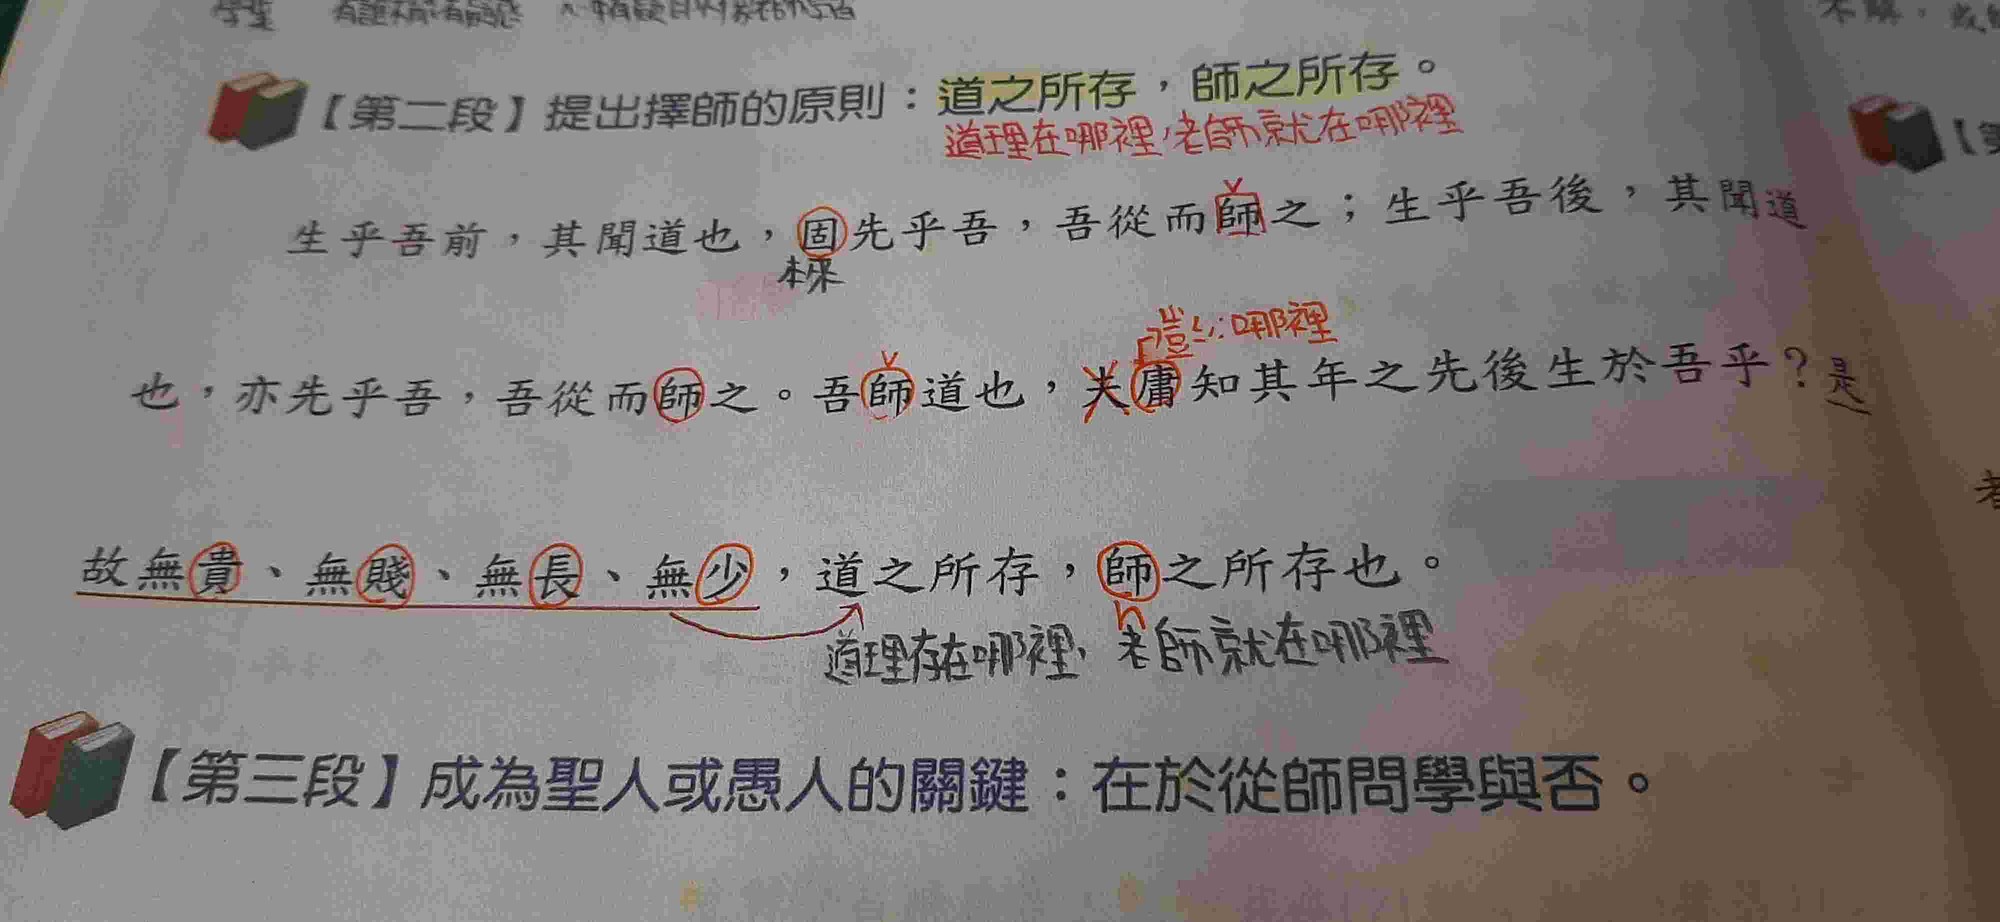 【第二段】提出擇師的原則：道之所存，師之所存。
道理在哪裡，老師就在哪裡
生乎吾前，其聞道也，固先乎吾，吾從而師之；生乎吾後，其聞道
本來
豈
哪裡
也，亦先乎吾，吾從而師之。吾師道也，夫庸知其年之先後生於吾乎？是
故無貴、無賤、無長、無少，道之所存，師之所存也。
道理存在哪裡，老師就在哪裡
【第三段】成為聖人或愚人的關鍵：在於從師問學與否。